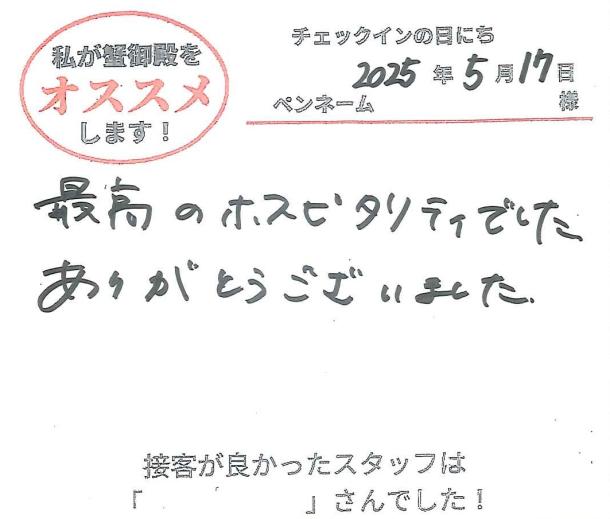 私が蟹御殿を
オススメ
します！
チェックインの日にち
2025年5月17日
ペンネーム 様
最高のホスピタリティでした
ありがとうございました.
接客が良かったスタッフは
「 」さんでした！